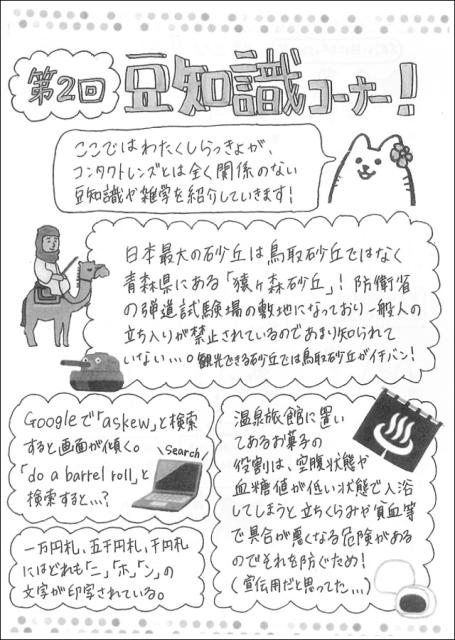 第2回 豆知識コーナー!
ここではわたくしらっきょが、
コンタクトレンズとは全く関係のない
豆知識や雑学を紹介していきます!
日本最大の砂丘は鳥取砂丘ではなく
青森県にある「猿ヶ森砂丘」! 防衛省
の弾道試験場の敷地になっており一般人の
立ち入りが禁止されているのであまり知られて
いない…。観光できる砂丘では鳥取砂丘がイチバン!
Googleで「askew」と検索
すると画面が傾く。
「do a barrel roll」と
検索すると…?
Search
一万円札、五千円札、千円札
にはどれも「ニ」「ホ」「ン」の
文字が印字されている。
温泉旅館に置い
てあるお菓子の
役割は、空腹状態や
血糖値が低い状態で入浴
してしまうと立ちくらみや貧血等
で具合が悪くなる危険がある
のでそれを防ぐため!
(宣伝用だと思ってた…)